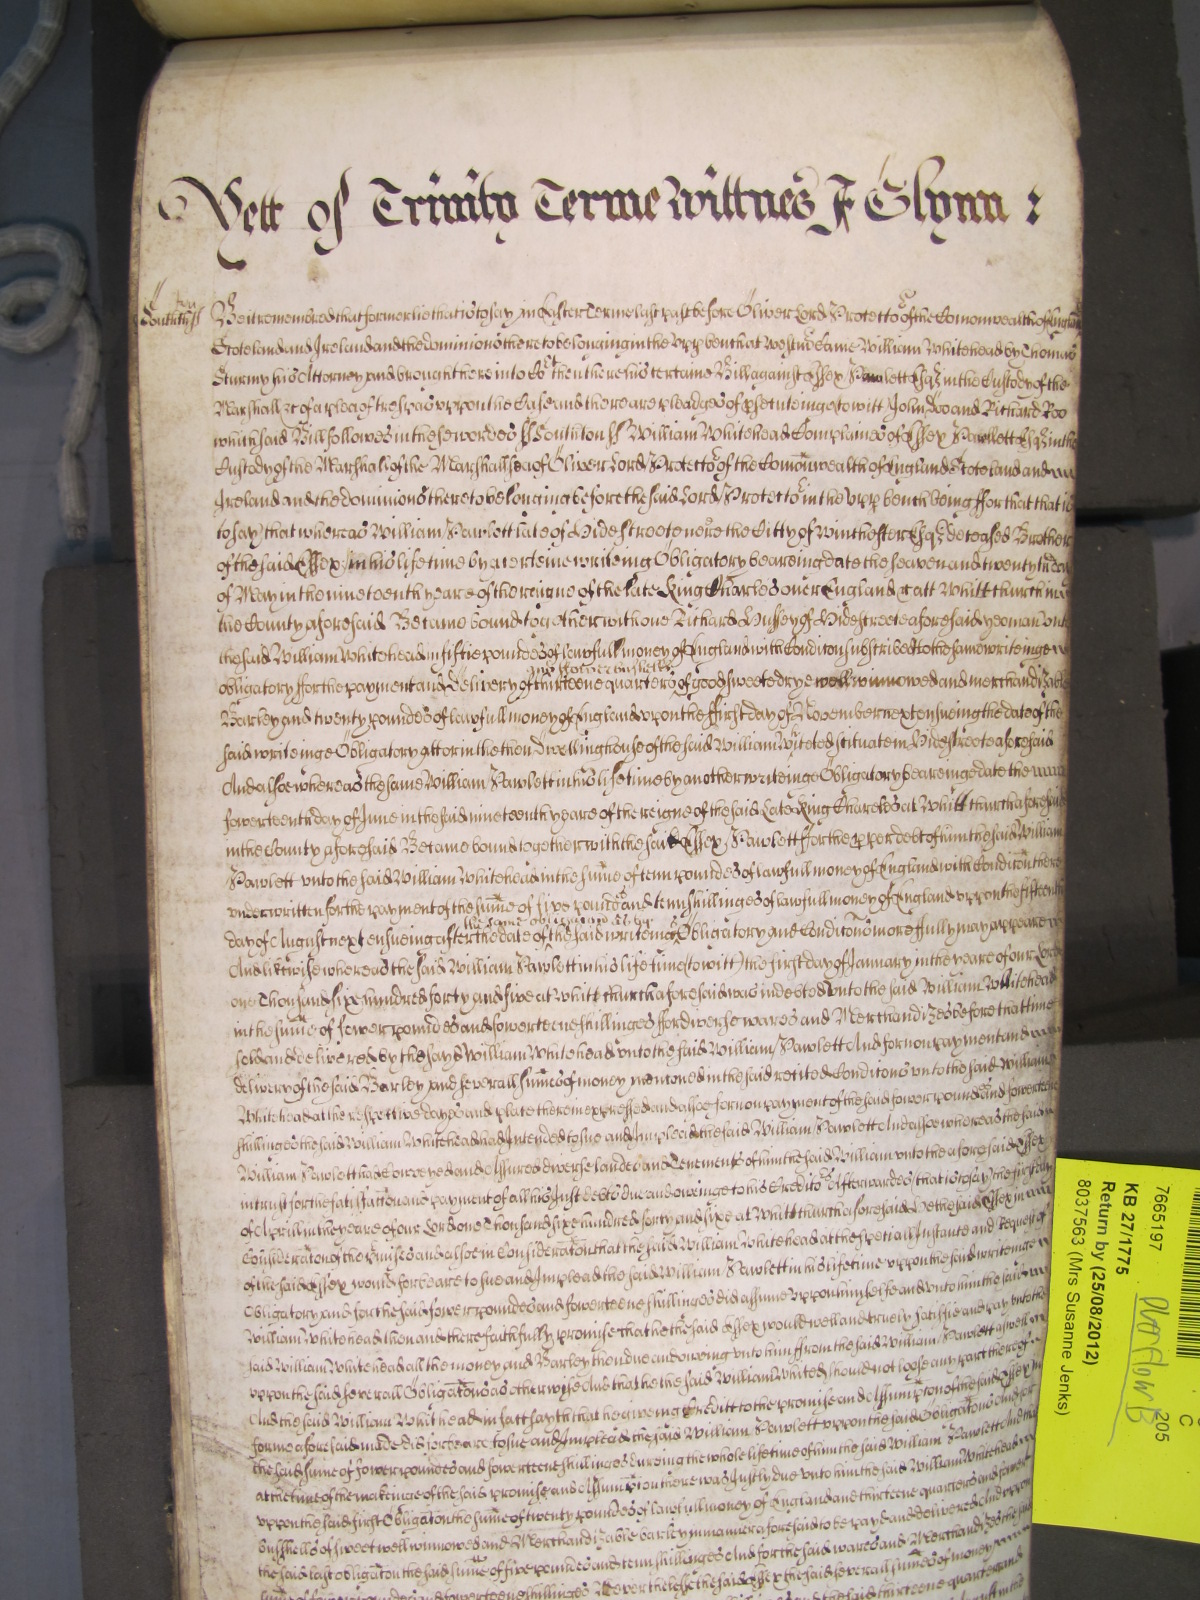 Yett of Trinity Terme Wittnes J Glynn :
Southt ss Be it remembred that formerlie that is to say in Easter Terme last past before Oliver Lord Protector of the Comonwealth of England
Scotland and Ireland and the dominions thereto belonging in the upp bench at Westm Came William Whitehead by Thomas
Sturmy his Attorney and brought here into Co then there his certaine Bill against Essex Pawlett Esqr in the Custody of the
Marshall &c of a plea of trespas uppon the Case and there are pledges of psecuteinge to witt John Doo and Richard Roo
which said Bill followes in these wordes ss Southton ss William Whitehead Complaines of Essex Pawlett Esqr in the
Custody of the Marshall of the Marshallsea of Oliver Lord Protector of the Comonwealth of England Scotland and
Ireland and the dominions thereto belonging before the said Lord Protector in the upp bench being ffor that that is
to say that whereas William Pawlett late of Hide streete neere the Citty of Winchester Esqr deceased Brother
of the said Essex in his life time by a certeine writeing Obligatory beareing date the seaven and twentyth day
of May in the nineteenth yeare of the reigne of the late King Charles over England &c att Whittchurch in
the County aforesaid Became bound together with one Richard Hussey of Hide streete aforesaid yeoman unto
the said William Whitehead in fiftie poundes of lawfull money of England with Condicon subscribed to the same writeinge
and fower bushells
obligatory ffor the payment and delivery of thirteene quarters of good sweete drye well winnowed and merchandizable
Barley and twenty poundes of lawfull money of England uppon the ffirst day of November next ensueing the date of the
said writeinge Obligatory att or in the then dwellinghouse of the said William Whitehed scituate in Hide streete aforesaid
And alsoe whereas the same William Pawlett in his life time by another writeinge Obligatory beareinge date the
fowerteenth day of June in the said nineteenth yeare of the reigne of the said Late King Charles at Whittchurch aforesaid
in the County aforesaid Became bound together with the said Essex Pawlett ffor the pper debt of him the said William
Pawlett unto the said William Whitehead in the sume of tenn poundes of lawfull money of England with Condicon there
underwritten for the payment of the sume of five poundes and tenn shillinges of lawfull money of England uppon the fifteenth
the same obligacons
day of August next ensueing after the date of the said writeing Obligatory and Condicons more fully may appeare
And likewise whereas the said William Pawlett in his life time (to witt) the first day of January in the yeare of our Lord
one Thousand six hundred forty and five at Whittchurch aforesaid was indebted unto the said William Whitehead
in the sume of fower poundes and fowerteene shillinges ffor diverse wares and Merchandizes before that time
sold and delivered by the sayd William Whitehead unto the said William Pawlett And for non payment and
delivery of the said Barley and severall sumes of money menconed in the said recited Condicons unto the said William
Whitehead at the respective dayes and place therein expressed and alsoe for non payment of the said fower poundes and fowerteene
shillinges the said William Whitehead had Intended to sue and Implead the said William Pawlett And alsoe whereas the said
William Pawlett had Conveyed and Assured diverse landes and Tenements of him the said William unto the aforesaid Essex
in trust for the satisfaction and payment of all his Just debts due and oweinge to his Creditors Afterwardes that is to say the first day
of Aprill in the yeare of our Lord one Thousand six hundred forty and six at Whittchurch aforesaid He the said Essex in
Consideracon of the Pmises and alsoe in Consideracon that the said William Whitehead at the speciall Instance and Request of
of the said Essex would forbeare to sue and Implead the said William Pawlett in his life time uppon the said writeinge
Obligatory and for the said fower poundes and fowerteene shillinges did assume uppon himselfe and unto him the said
William Whitehead then and there faithfully promise that he the said Essex would well and truely satisfie and pay unto the
said William Whitehead all the money and Barley then due and oweing unto him from the said William Pawlett aswell
uppon the said severall Obligacons as otherwise And that he the said William Whitehed should not loose any part thereof
And the said William Whitehead in fact saith that he giveing Creditt to the promise and Assumpcon of the said Essex in
forme aforesaid made did forbeare to sue and Implead the said William Pawlett uppon the said Obligacons and for
the said sume of fower poundes and fowerteene shillinges dureing the whole life time of him the said William Pawlett And that
at the time of the makeinge of the said promise and Assumpcon there was Justly due unto him the said William Whitehead
uppon the said first Obligacon the sume of twenty poundes of lawfull money of England and thirteene quarters and fower
bushells of sweet well winnowed and Merchandizable barley in manner aforesaid to be payd and delivered And uppon
the said last obligacon the said sume of five poundes and tenn shillinges And for the said wares and Merchandizes the
sume of fower poundes and fowerteene shillinges Neverthelesse the said Essex the said severall sumes of money
7665197
KB 27/1775
Return by (25/08/2012)
8037563 (Mrs Susanne Jenks)
205
C